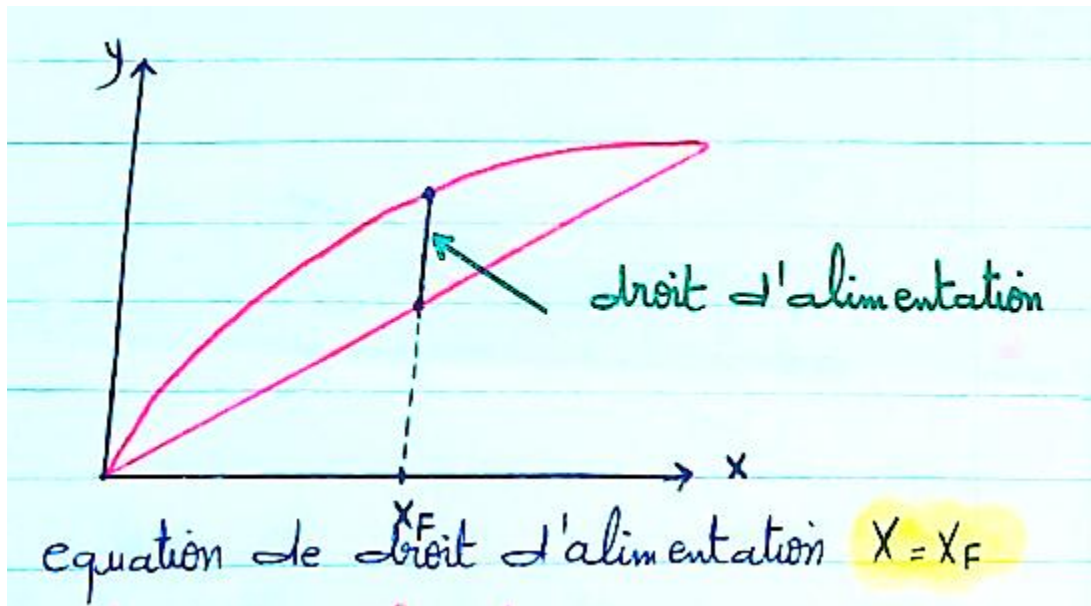 y
droit d'alimentation
x
XF
equation de droit d'alimentation X = XF